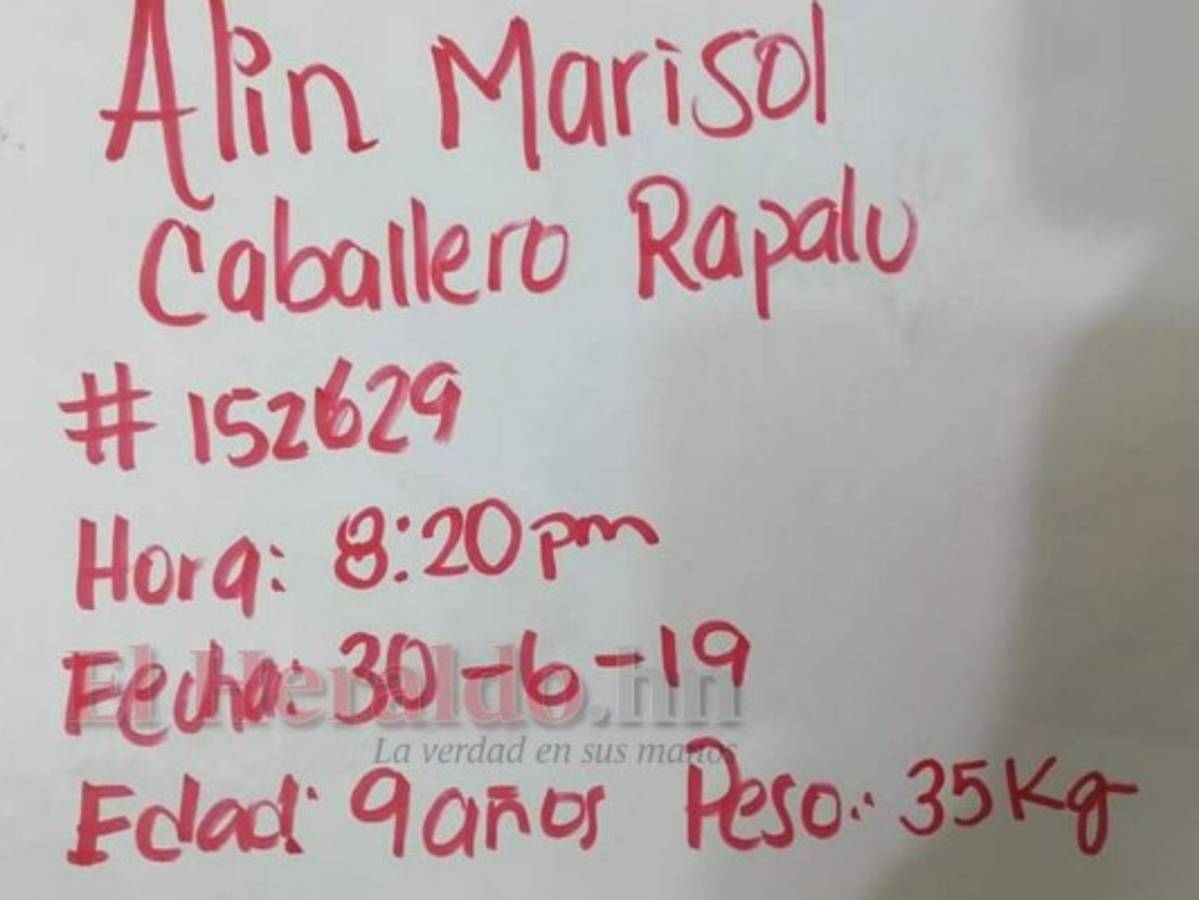 Alin Marisol
Caballero Rapalu
# 152629
Hora: 8:20pm
Fecha: 30-6-19
El Heraldo.hn
La verdad en sus manos
Edad: 9 años Peso: 35 Kg